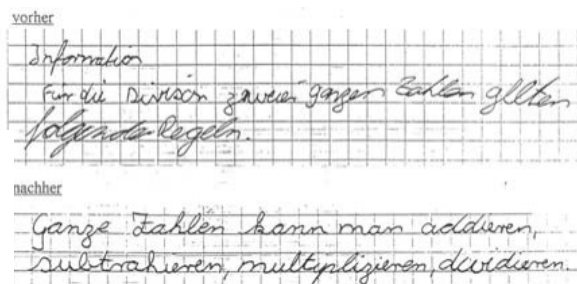 vorher
Information
Für die Divison zweier ganzen Zahlen gelten
folgende Regeln.
nachher
Ganze Zahlen kann man addieren,
subtrahieren, multiplizieren, dividieren.